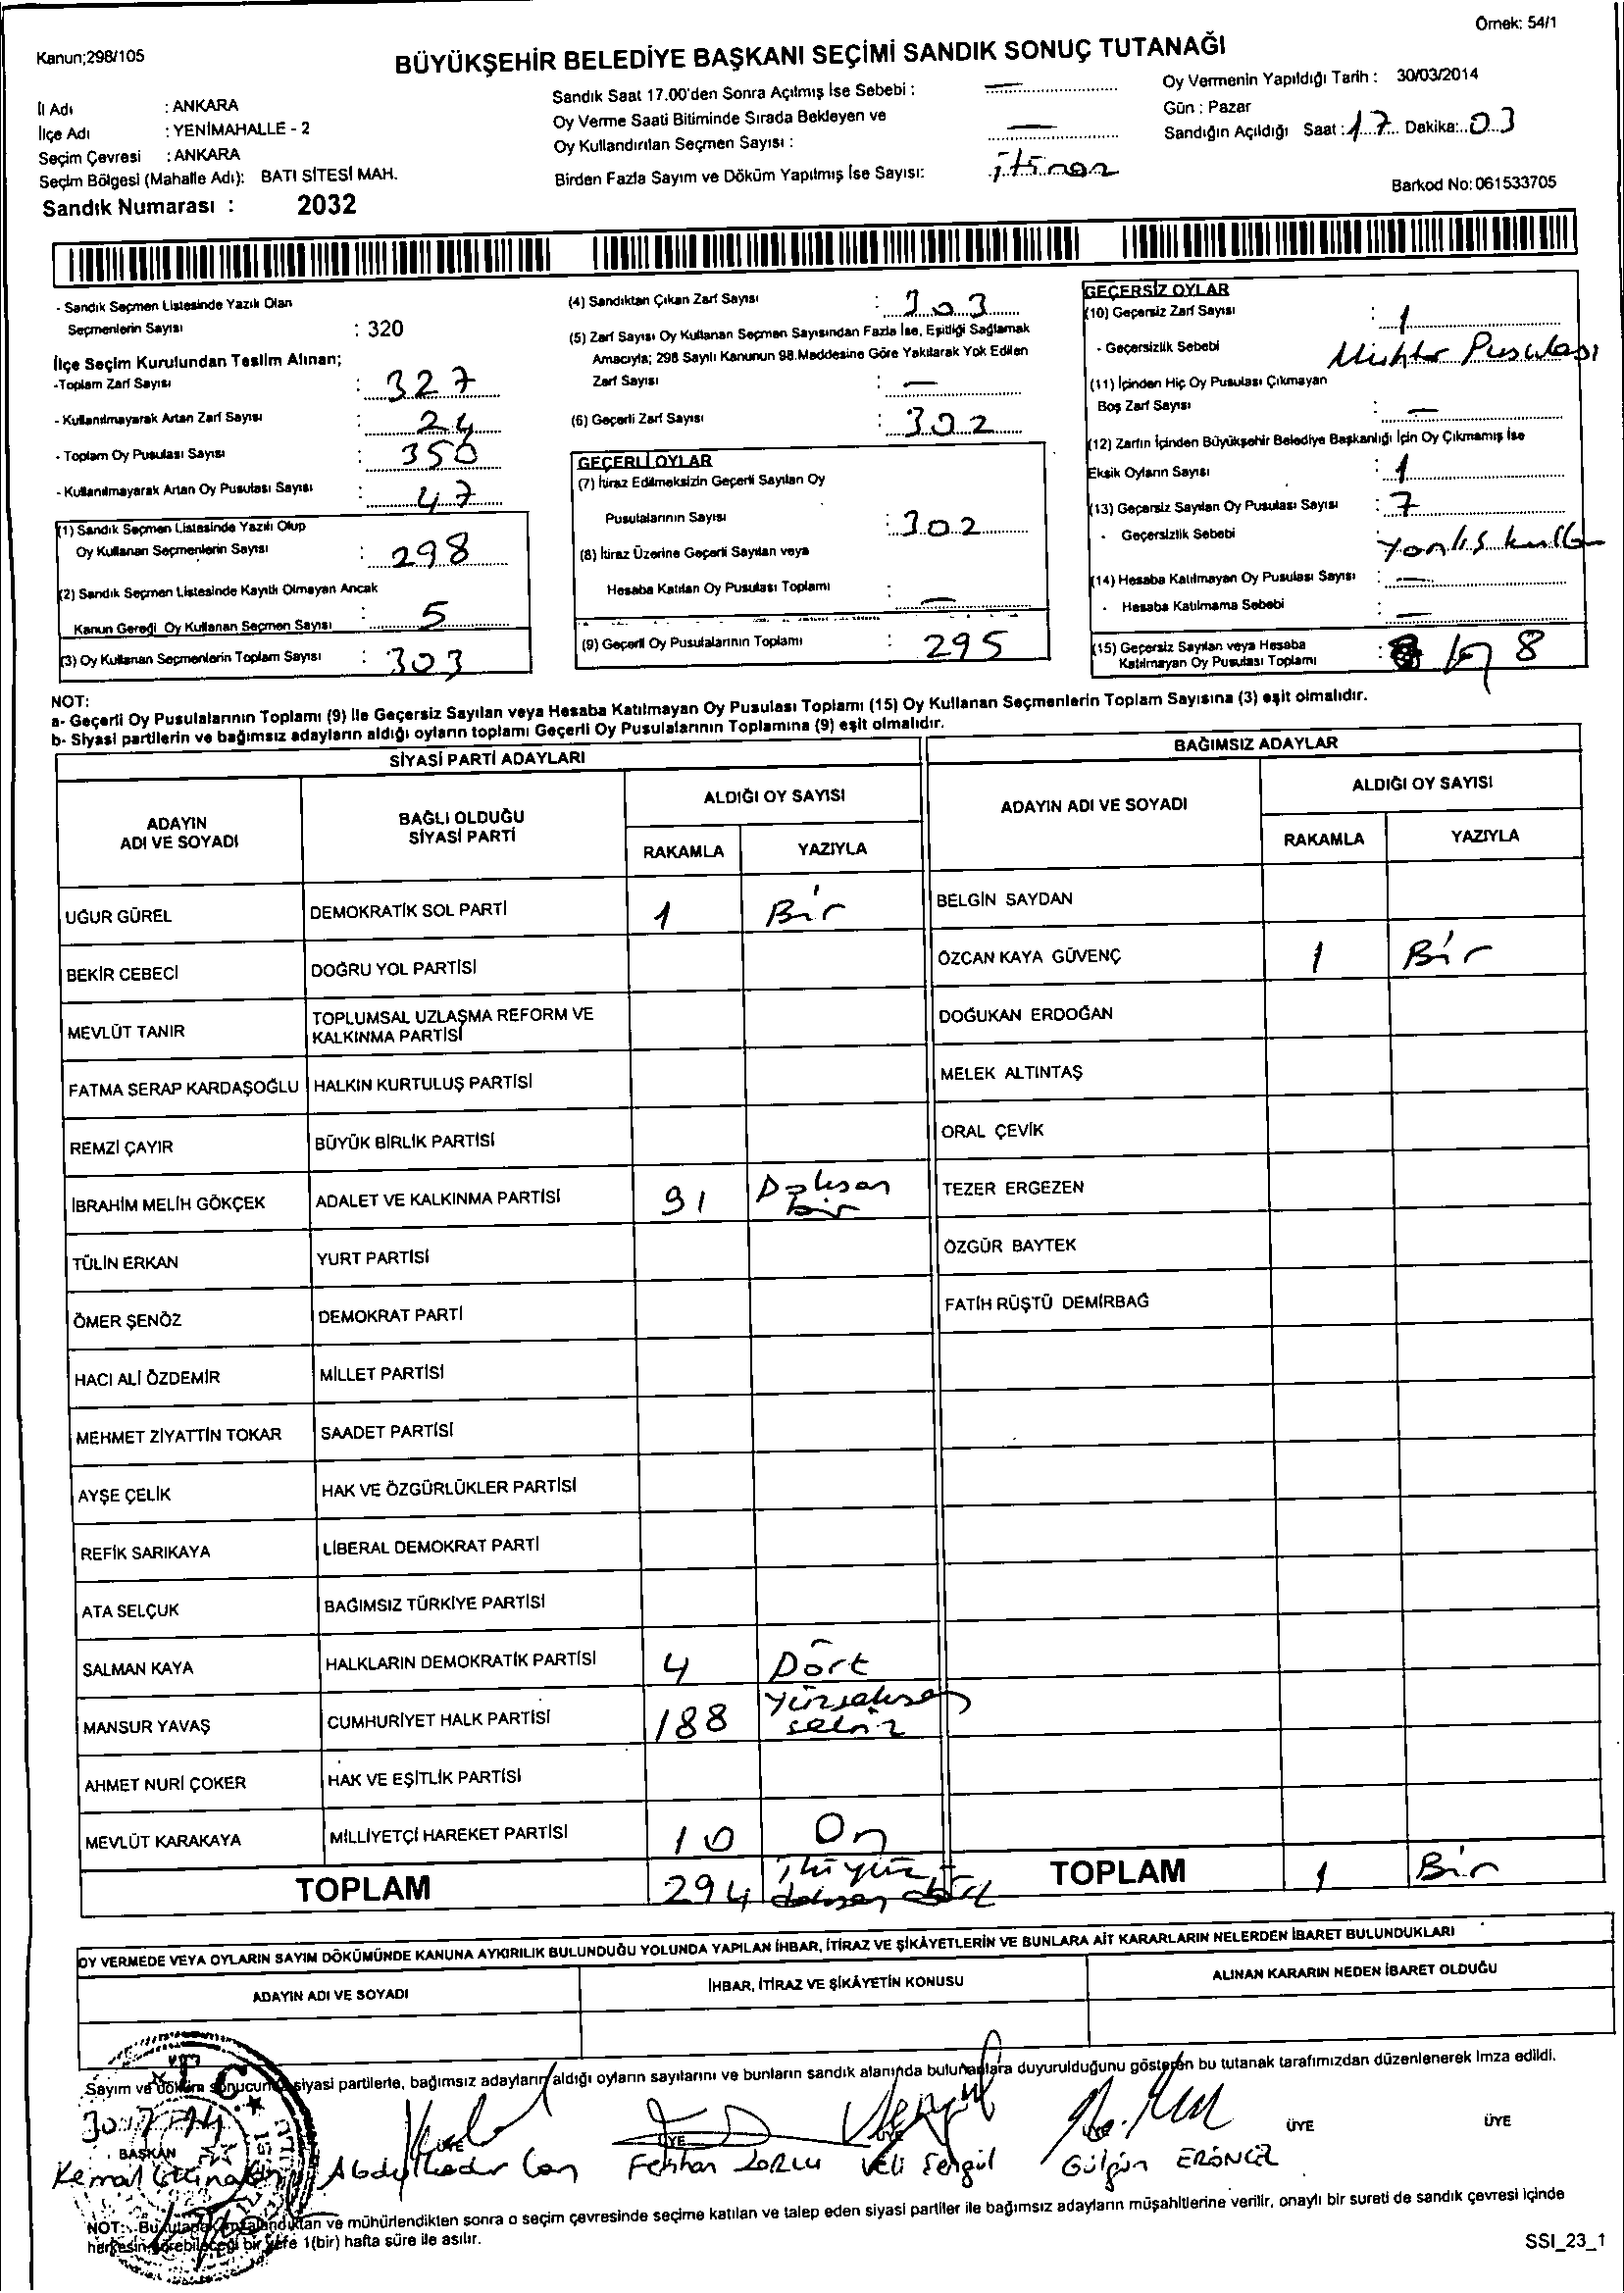 Örnek: 54/1
Kanun;298/105
BÜYÜKŞEHİR BELEDİYE BAŞKANI SEÇİMİ SANDIK SONUÇ TUTANAĞI
İl Adı : ANKARA
İlçe Adı : YENİMAHALLE - 2
Seçim Çevresi : ANKARA
Seçim Bölgesi (Mahalle Adı): BATI SİTESİ MAH.
Sandık Numarası : 2032
Sandık Saat 17.00'den Sonra Açılmış İse Sebebi : —
Oy Verme Saati Bitiminde Sırada Bekleyen ve
Oy Kullandırılan Seçmen Sayısı : —
Birden Fazla Sayım ve Döküm Yapılmış İse Sayısı:
Oy Vermenin Yapıldığı Tarih : 30/03/2014
Gün : Pazar
Sandığın Açıldığı Saat : 17 Dakika: 03
Barkod No: 061533705
- Sandık Seçmen Listesinde Yazılı Olan
Seçmenlerin Sayısı : 320
İlçe Seçim Kurulundan Teslim Alınan;
-Toplam Zarf Sayısı : 327
- Kullanılmayarak Artan Zarf Sayısı : 24
- Toplam Oy Pusulası Sayısı : 350
- Kullanılmayarak Artan Oy Pusulası Sayısı : 47
(1) Sandık Seçmen Listesinde Yazılı Olup
Oy Kullanan Seçmenlerin Sayısı : 298
(2) Sandık Seçmen Listesinde Kayıtlı Olmayan Ancak
Kanun Gereği Oy Kullanan Seçmen Sayısı : 5
(3) Oy Kullanan Seçmenlerin Toplam Sayısı : 303
(4) Sandıktan Çıkan Zarf Sayısı : 303
(5) Zarf Sayısı Oy Kullanan Seçmen Sayısından Fazla İse, Eşitliği Sağlamak
Amacıyla; 298 Sayılı Kanunun 98.Maddesine Göre Yakılarak Yok Edilen
Zarf Sayısı : —
(6) Geçerli Zarf Sayısı : 302
GEÇERLİ OYLAR
(7) İtiraz Edilmeksizin Geçerli Sayılan Oy
Pusulalarının Sayısı : 302
(8) İtiraz Üzerine Geçerli Sayılan veya
Hesaba Katılan Oy Pusulası Toplamı : —
(9) Geçerli Oy Pusulalarının Toplamı : 295
GEÇERSİZ OYLAR
(10) Geçersiz Zarf Sayısı : 1
- Geçersizlik Sebebi Muhtar Pusulası
(11) İçinden Hiç Oy Pusulası Çıkmayan
Boş Zarf Sayısı : —
(12) Zarfın İçinden Büyükşehir Belediye Başkanlığı İçin Oy Çıkmamış İse
Eksik Oyların Sayısı : 1
(13) Geçersiz Sayılan Oy Pusulası Sayısı : 7
- Geçersizlik Sebebi
(14) Hesaba Katılmayan Oy Pusulası Sayısı : —
- Hesaba Katılmama Sebebi : —
(15) Geçersiz Sayılan veya Hesaba
Katılmayan Oy Pusulası Toplamı : 8
NOT:
a- Geçerli Oy Pusulalarının Toplamı (9) İle Geçersiz Sayılan veya Hesaba Katılmayan Oy Pusulası Toplamı (15) Oy Kullanan Seçmenlerin Toplam Sayısına (3) eşit olmalıdır.
b- Siyasi partilerin ve bağımsız adayların aldığı oyların toplamı Geçerli Oy Pusulalarının Toplamına (9) eşit olmalıdır.
SİYASİ PARTİ ADAYLARI
ADAYIN ADI VE SOYADI
BAĞLI OLDUĞU SİYASİ PARTİ
ALDIĞI OY SAYISI
RAKAMLA YAZIYLA
UĞUR GÜREL DEMOKRATİK SOL PARTİ 1 Bir
BEKİR CEBECİ DOĞRU YOL PARTİSİ
MEVLÜT TANIR TOPLUMSAL UZLAŞMA REFORM VE
KALKINMA PARTİSİ
FATMA SERAP KARDAŞOĞLU HALKIN KURTULUŞ PARTİSİ
REMZİ ÇAYIR BÜYÜK BİRLİK PARTİSİ
İBRAHİM MELİH GÖKÇEK ADALET VE KALKINMA PARTİSİ 91 Doksan bir
TÜLİN ERKAN YURT PARTİSİ
ÖMER ŞENÖZ DEMOKRAT PARTİ
HACI ALİ ÖZDEMİR MİLLET PARTİSİ
MEHMET ZİYATTİN TOKAR SAADET PARTİSİ
AYŞE ÇELİK HAK VE ÖZGÜRLÜKLER PARTİSİ
REFİK SARIKAYA LİBERAL DEMOKRAT PARTİ
ATA SELÇUK BAĞIMSIZ TÜRKİYE PARTİSİ
SALMAN KAYA HALKLARIN DEMOKRATİK PARTİSİ 4 Dört
MANSUR YAVAŞ CUMHURİYET HALK PARTİSİ 188 Yüzseksen sekiz
AHMET NURİ ÇOKER HAK VE EŞİTLİK PARTİSİ
MEVLÜT KARAKAYA MİLLİYETÇİ HAREKET PARTİSİ 10 On
TOPLAM 294 ikiyüz doksan dört
BAĞIMSIZ ADAYLAR
ADAYIN ADI VE SOYADI
ALDIĞI OY SAYISI
RAKAMLA YAZIYLA
BELGİN SAYDAN
ÖZCAN KAYA GÜVENÇ 1 Bir
DOĞUKAN ERDOĞAN
MELEK ALTINTAŞ
ORAL ÇEVİK
TEZER ERGEZEN
ÖZGÜR BAYTEK
FATİH RÜŞTÜ DEMİRBAĞ
TOPLAM 1 Bir
OY VERMEDE VEYA OYLARIN SAYIM DÖKÜMÜNDE KANUNA AYKIRILIK BULUNDUĞU YOLUNDA YAPILAN İHBAR, İTİRAZ VE ŞİKÂYETLERİN VE BUNLARA AİT KARARLARIN NELERDEN İBARET BULUNDUKLARI
ADAYIN ADI VE SOYADI İHBAR, İTİRAZ VE ŞİKÂYETİN KONUSU ALINAN KARARIN NEDEN İBARET OLDUĞU
Sayım ve döküm sonucunda siyasi partilerle, bağımsız adayların aldığı oyların sayılarını ve bunların sandık alanında bulunanlara duyurulduğunu gösteren bu tutanak tarafımızdan düzenlenerek imza edildi.
T.C.
BAŞKAN ÜYE ÜYE ÜYE ÜYE ÜYE
Kemal Abdulkadir Can Fethan ZORLU Veli Şengül Gülgün ERÖNCEL
NOT: Bu tutanak imzalandıktan ve mühürlendikten sonra o seçim çevresinde seçime katılan ve talep eden siyasi partiler ile bağımsız adayların müşahitlerine verilir, onaylı bir sureti de sandık çevresi içinde
herkesin görebileceği bir yere 1(bir) hafta süre ile asılır.
SSI_23_1